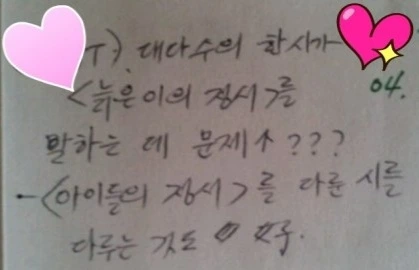 T). 대다수의 한시가
<늙은이의 정서>를 04.
말하는 데 문제↑???
-<아이들의 정서>를 다룬 시를
다루는 것도